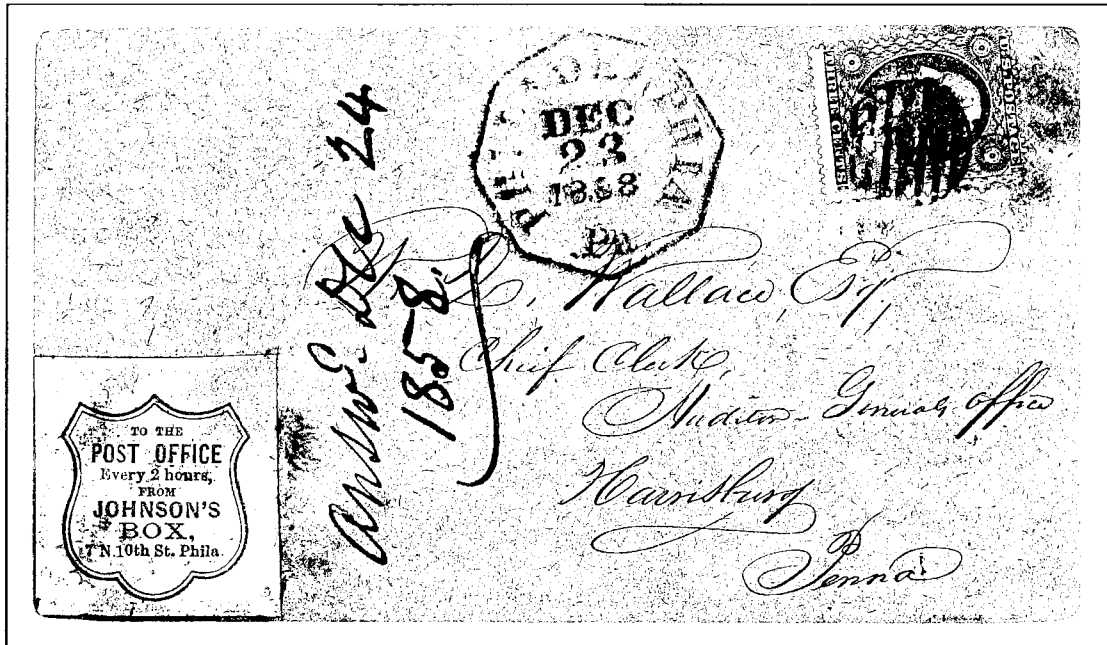 PHILADELPHIA
DEC
23
1858
Pa.
Answd. Dec 24
1858.
Wallace, Esq,
Chief Clerk,
Auditor Generals Office
Harrisburg
Penna
TO THE
POST OFFICE
Every 2 hours,
FROM
JOHNSON'S
BOX,
7 N. 10th St. Phila.